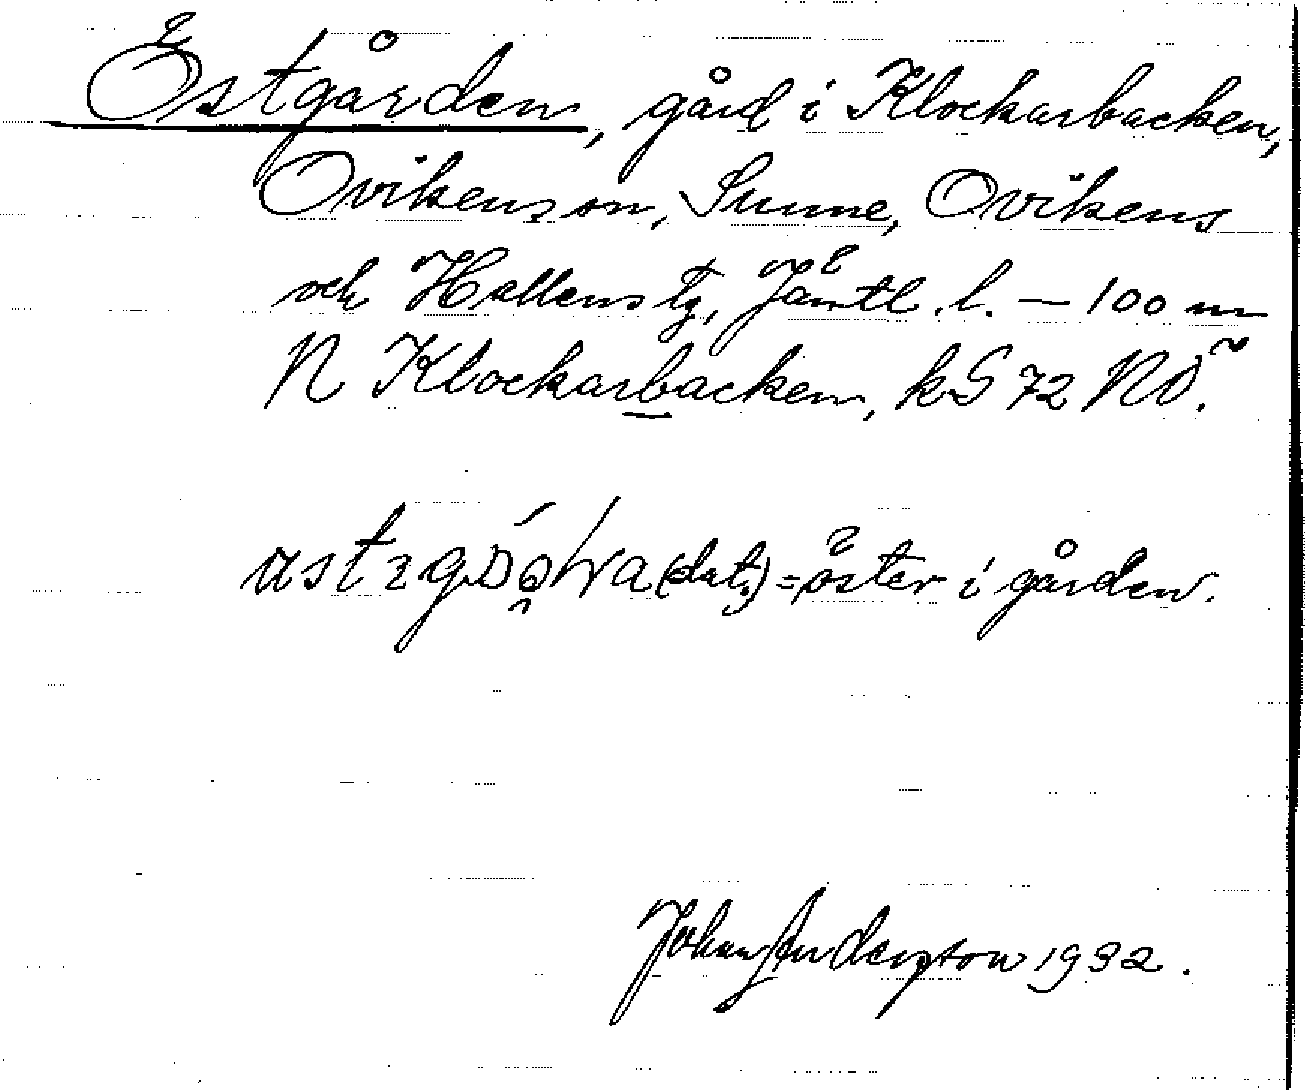 Östgården, gård i Klockarbacken,
Ovikens sn, Sunne, Ovikens
och Hallens tg, Jämtl. l. — 100 m
N Klockarbacken, kS 72 NÖ.
(dat.) = öster i gården.
Johan Anderzton 1932.